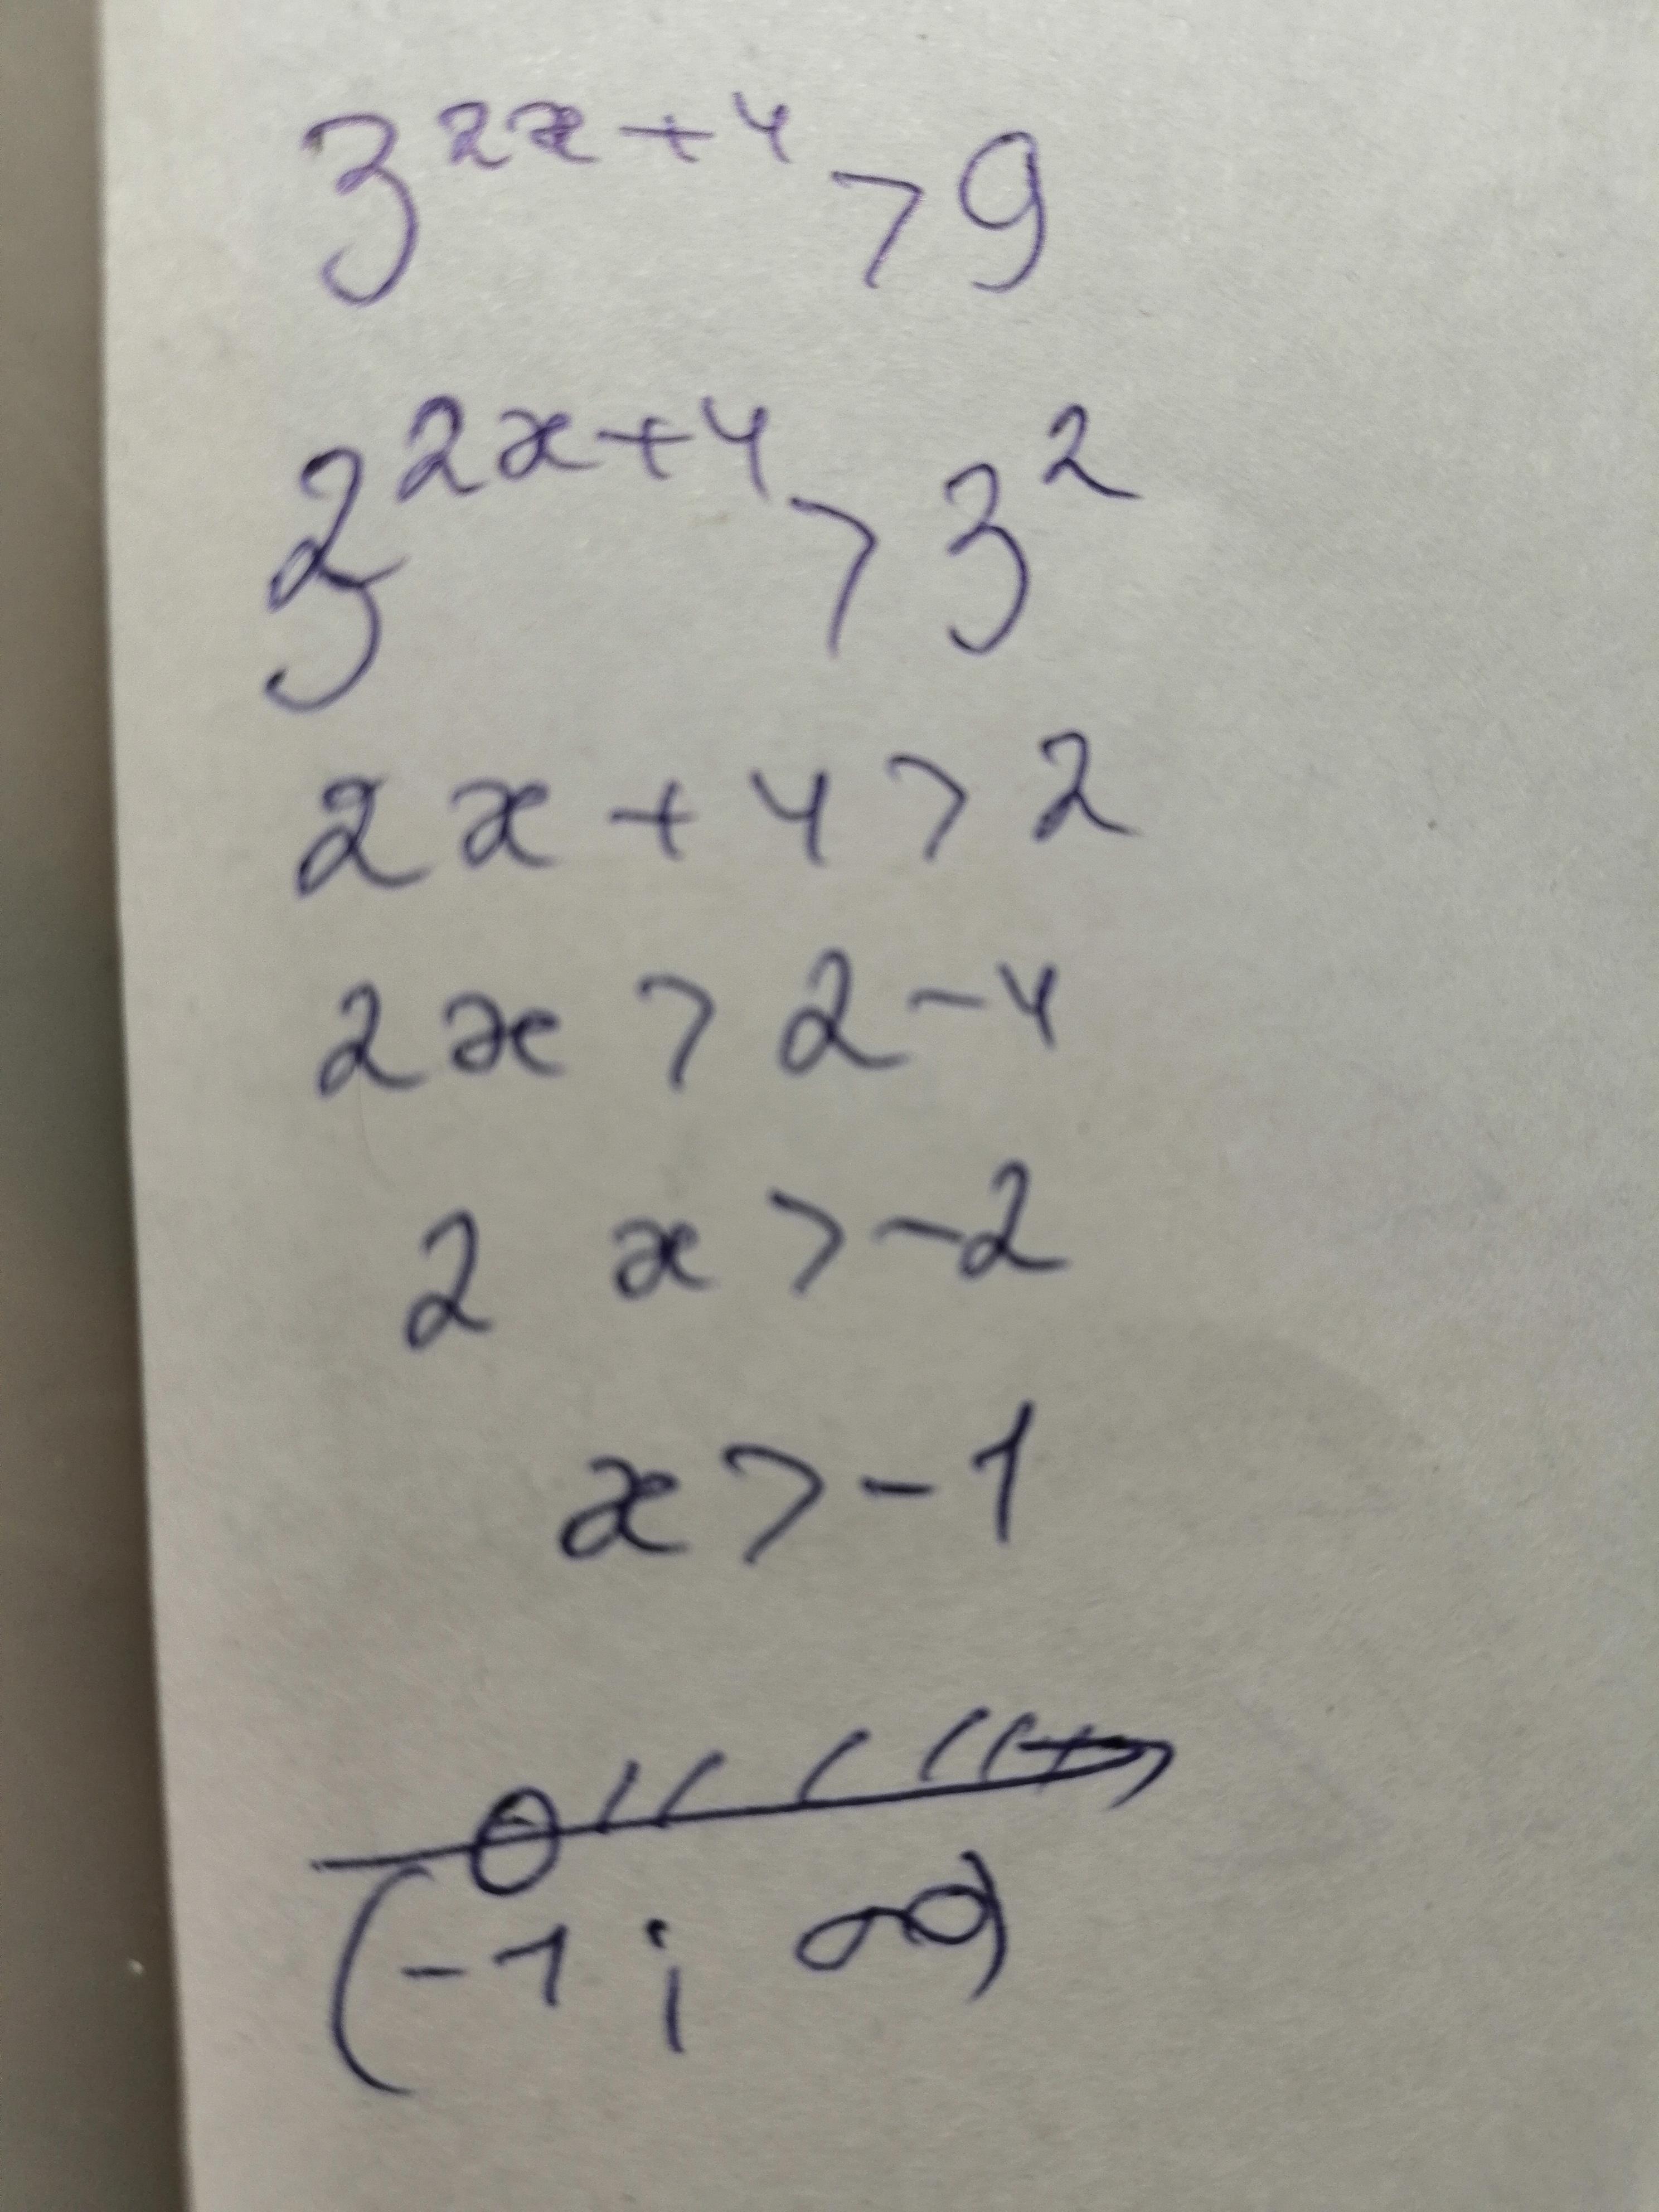 3^{2x+4} > 9
3^{2x+4} > 3^2
2x + 4 > 2
2x > 2 - 4
2 x > -2
x > -1
(-1 ; ∞)